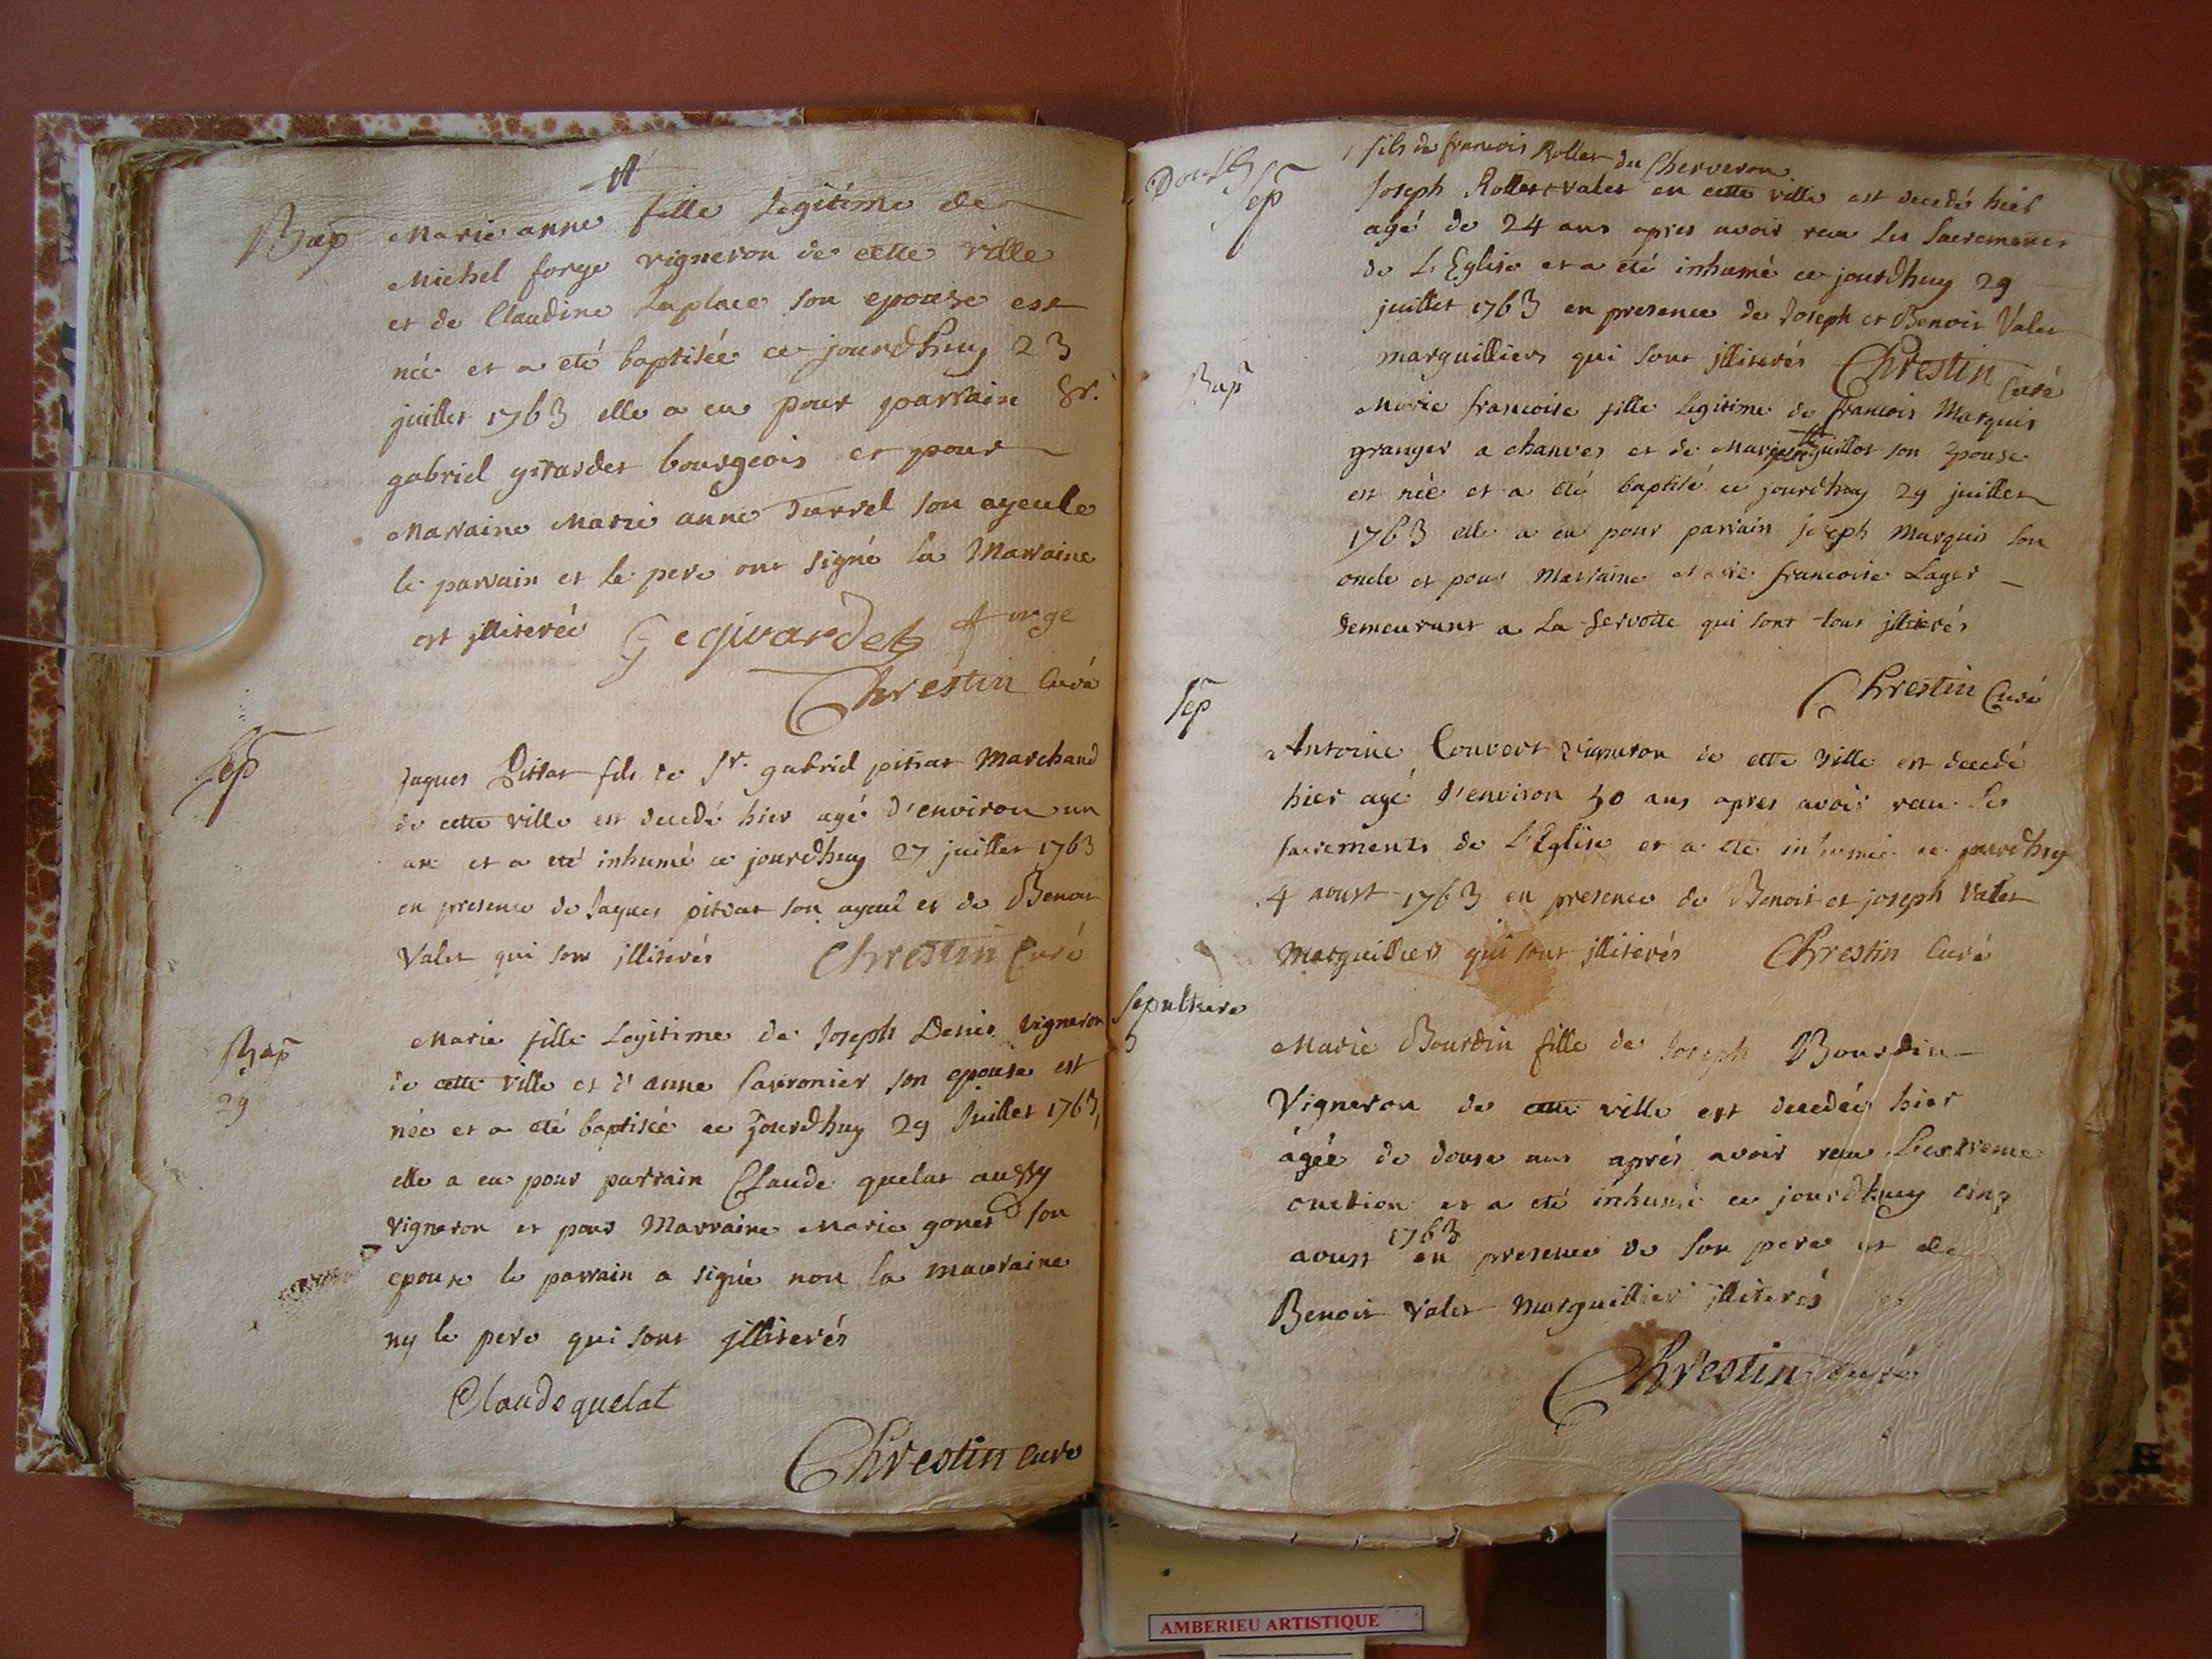 Bap
Marie anne fille legitime de
Michel forge vigneron de cette ville
et de Claudine Laplace son epouse est
née et a eté baptisée ce jourdhuy 23
juillet 1763 elle a eu pour parrain Sr.
gabriel girardet bourgeois et pour
Marraine Marie anne Durrel son ayeule
le parrain et le pere ont signé la Marraine
est illiterée Gegirardet forge
Chrestin Curé
Sep
Jaques Pittat fils de Sr. gabriel pittat Marchand
de cette ville est decedé hier agé d'environ un
an et a eté inhumé ce jourdhuy 27 juillet 1763
en presence de Jaques pittat son ayeul et de Benoit
Valet qui sont illiterés Chrestin Curé
Bap
29
Marie fille Legitime de Joseph Denis vigneron
de cette ville et d'anne son epouse est
née et a eté baptisée ce jourdhuy 29 Juillet 1763,
elle a eu pour parrain Claude quelat aussy
vigneron et pour Marraine Marie gonet son
epouse le parrain a signé non la marraine
ny le pere qui sont illiterés
Claude quelat
Chrestin Curé
Sep
fils de francois Rollet du Cherveron
Joseph Rollet valet en cette ville est decedé hier
agé de 24 ans apres avoir receu les sacrements
de L'Eglise et a eté inhumé ce jourdhuy 29
juillet 1763 en presence de Joseph et Benoit Valet
marguilliers qui sont illiterés Chrestin Curé
Bap
Marie francoise fille legitime de francois Marquis
granger a chanves et de Marie guillot son Epouse
est née et a eté baptisé ce jourdhuy 29 juillet
1763 elle a eu pour parrain joseph Marquis son
oncle et pour Marraine Marie francoise Lager
demeurant a La Servette qui sont tous illiterés
Chrestin Curé
Sep
Antoine Convert vigneron de cette ville est decedé
hier agé d'environ 50 ans apres avoir receu Les
sacrements de L'Eglise et a eté inhumée ce jourdhuy
4 aoust 1763 en presence de Benoit et joseph Valet
Marguilliers qui sont illiterés Chrestin Curé
Sepulture
5
Marie Bourdin fille de Joseph Bourdin
Vigneron de cette ville est decedée hier
âgée de douse ans aprés avoir receu L'extreme
onction et a eté inhumé ce jourdhuy cinq
aoust 1763 en presence de son pere et de
Benoit Valet Marguillier illiterés
Chrestin Curé
AMBERIEU ARTISTIQUE